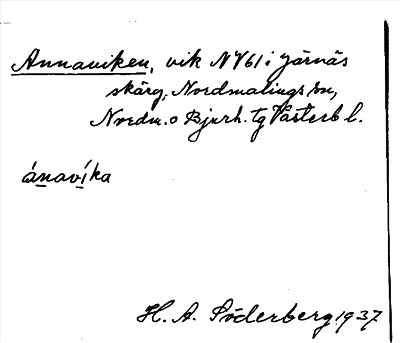 Annaviken, vik NV61 i Järnäs
skärg, Nordmalings sn,
Nordm. o Bjurh. tg Västerb l.
ánavíka
H. A. Söderberg 1937